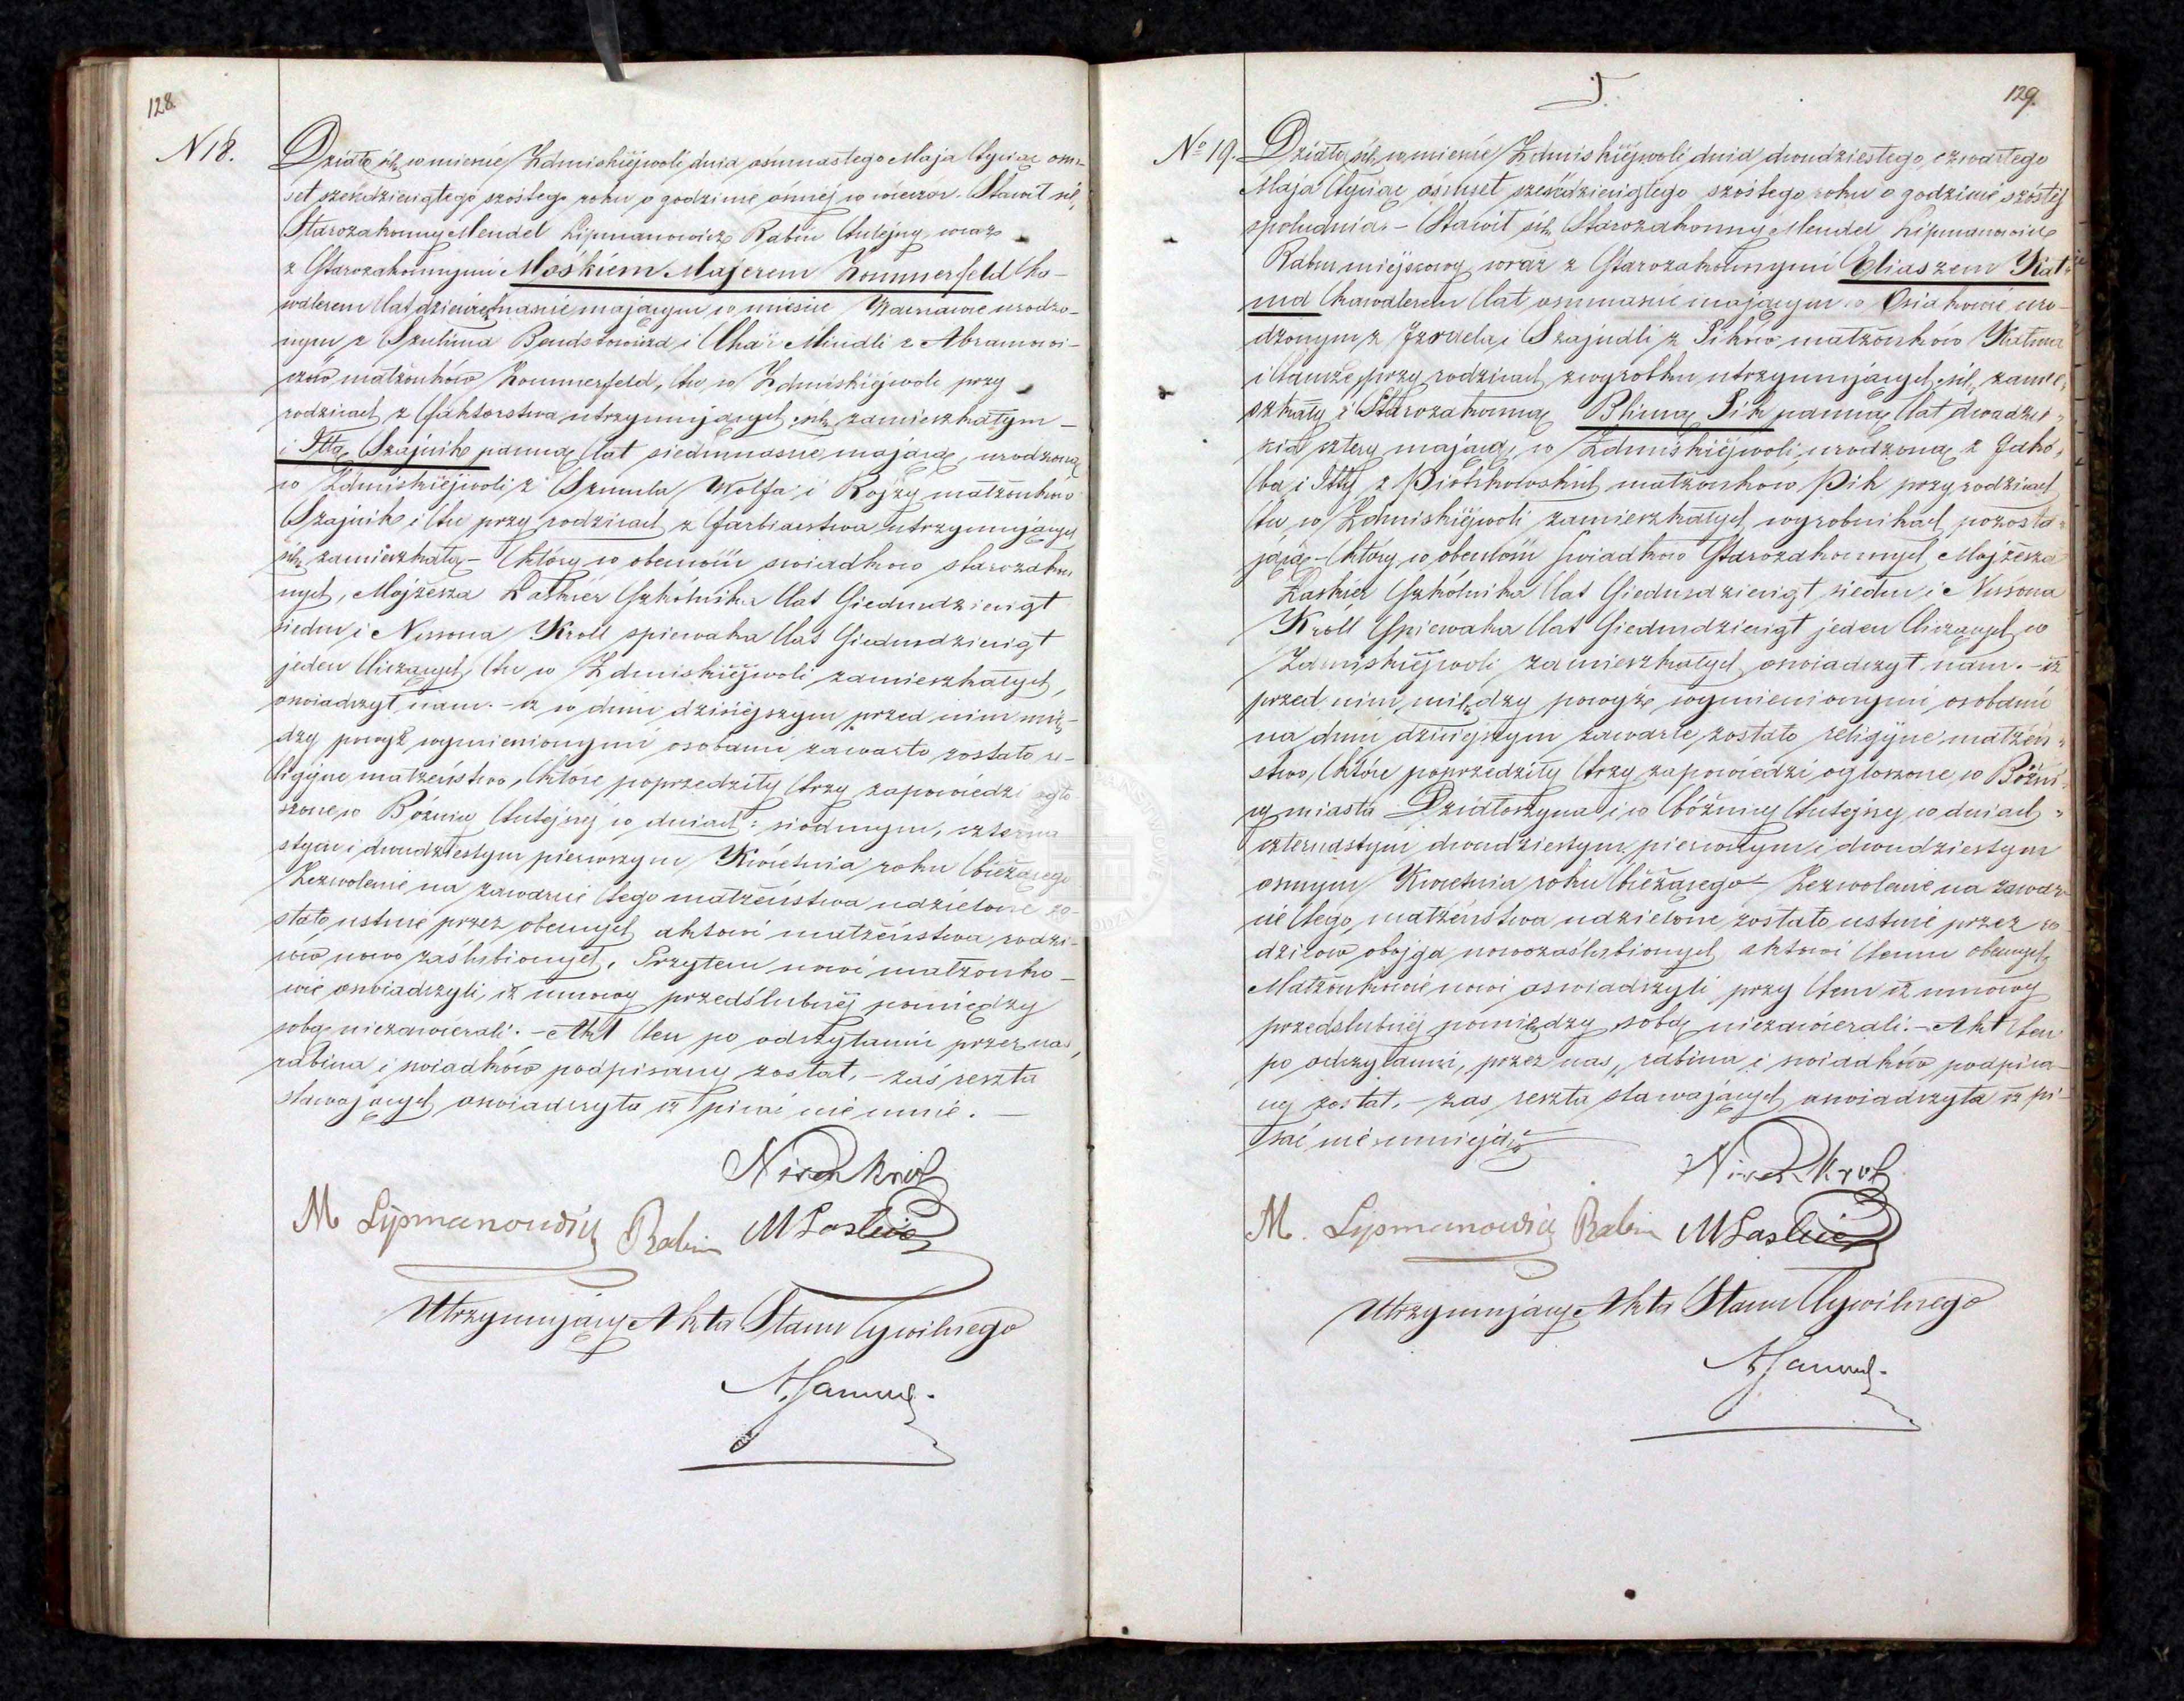 128.
N 18.
Działo się w mieście Zduńskiejwoli dnia ósmnastego Maja tysiąc óm-
set sześćdziesiątego szóstego roku o godzinie ósmej w wieczór. Stawił się
Starozakonny Mendel Lipmanowicz Rabin tutejszy, wraz
z Starozakonnymi Mośkiem Majerem Kommerfeld ka-
walerem lat dziewiętnaście mającym w mieście urodzo-
nym z Szulima i Chai Mindli z Abramowi-
czów małżonków Kommerfeld, tu w Zduńskiejwoli przy
rodzicach z faktorstwa utrzymujących się zamieszkałym
i Ittą Szajnik panną lat siedmnaście mającą, urodzoną
w Zduńskiejwoli z Szmula Wolfa i Rojzy małżonków
Szajnik i tu przy rodzicach z farbiarstwa utrzymujących
się zamieszkałą – który w obecności świadków starozakon
nych, Mojżesza Laskier Szkólnika lat siedmdziesiąt
siedm i Nissona Kroll śpiewaka lat siedmdziesiąt
jeden liczących, tu w Zduńskiejwoli zamieszkałych,
oświadczył nam. – iż w dniu dzisiejszym przed nim mię-
dzy powyż wymienionymi osobami zawarte zostało re-
ligijne małżeństwo, które poprzedziły trzy zapowiedzi ogło
szone w Bóżnicy tutejszej w dniach: siódmym, czterna
stym i dwudziestym pierwszym Kwietnia roku bieżącego
Zezwolenie na zawarcie tego małżeństwa udzielone zo-
stało ustnie przez obecnych aktowi małżeństwa rodzi-
ców nowo zaślubionych. Przytem nowi małżonko-
wie oświadczyli, iż umowy przedślubnej pomiędzy
sobą niezawierali. – Akt ten po odczytaniu przez nas,
rabina i świadków podpisany został, – zaś reszta
stawających oświadczyła iż pisać nie umie. –
Nisen Krol
M Lipmanowicz Rabin M Laskier
Utrzymujący Akta Stanu Cywilnego
129.
No 19.
Działo się w mieście Zduńskiejwoli dnia dwudziestego czwartego
Maja tysiąc ośmset sześćdziesiątego szóstego roku o godzinie szóstej
społudnia – Stawił się Starozakonny Mendel Lipmanowicz
Rabin miejscowy wraz z Starozakonnymi Eliaszem Kat-
ma kawalerem lat ośmnaście mającym w Osiakowie uro-
dzonym z Izraela i Szajndli z Pików małżonków Katma
i tamże przy rodzicach z wyrobku utrzymujących się, zamie-
szkały i Starozakonną Blimą Pik panną lat dwadzie-
ścia cztery mającą, w Zduńskiejwoli urodzoną z Jakó-
ba i Itty z Piotrkowskich małżonków Pik przy rodzicach
tu w Zduńskiejwoli zamieszkałych wyrobnikach pozosta-
jącą – który w obecności świadków Starozakonnych Mojżesza
Laskier Szkólnika lat siedmdziesiąt siedm i Nissona
Króll Śpiewaka lat siedmdziesiąt jeden liczących, w
Zduńskiejwoli zamieszkałych oświadczył nam. – iż
przed nim między powyż wymienionymi osobami
na dniu dzisiejszym zawarte zostało religijne małżeń-
stwo, które poprzedziły trzy zapowiedzi ogłoszone w Bóżni-
cy miasta Działoszyna i w bóżnicy tutejszej w dniach
czternastym dwudziestym pierwszym i dwudziestym
osmym Kwietnia roku bieżącego – Zezwolenie na zawar-
cie tego małżeństwa udzielone zostało ustnie przez ro
dziców obojga nowozaślubionych aktowi temu obecnych
Małżonkowie nowi oświadczyli przy tem iż umowy
przedślubnej pomiędzy sobą niezawierali. – Akt ten
po odczytaniu, przez nas, rabina i świadków podpisa-
ny został, – zaś reszta stawających oświadczyła iż pi-
sać nie umieją
Nisen Krol
M. Lipmanowicz Rabin M Laskier
Utrzymujący Akta Stanu Cywilnego